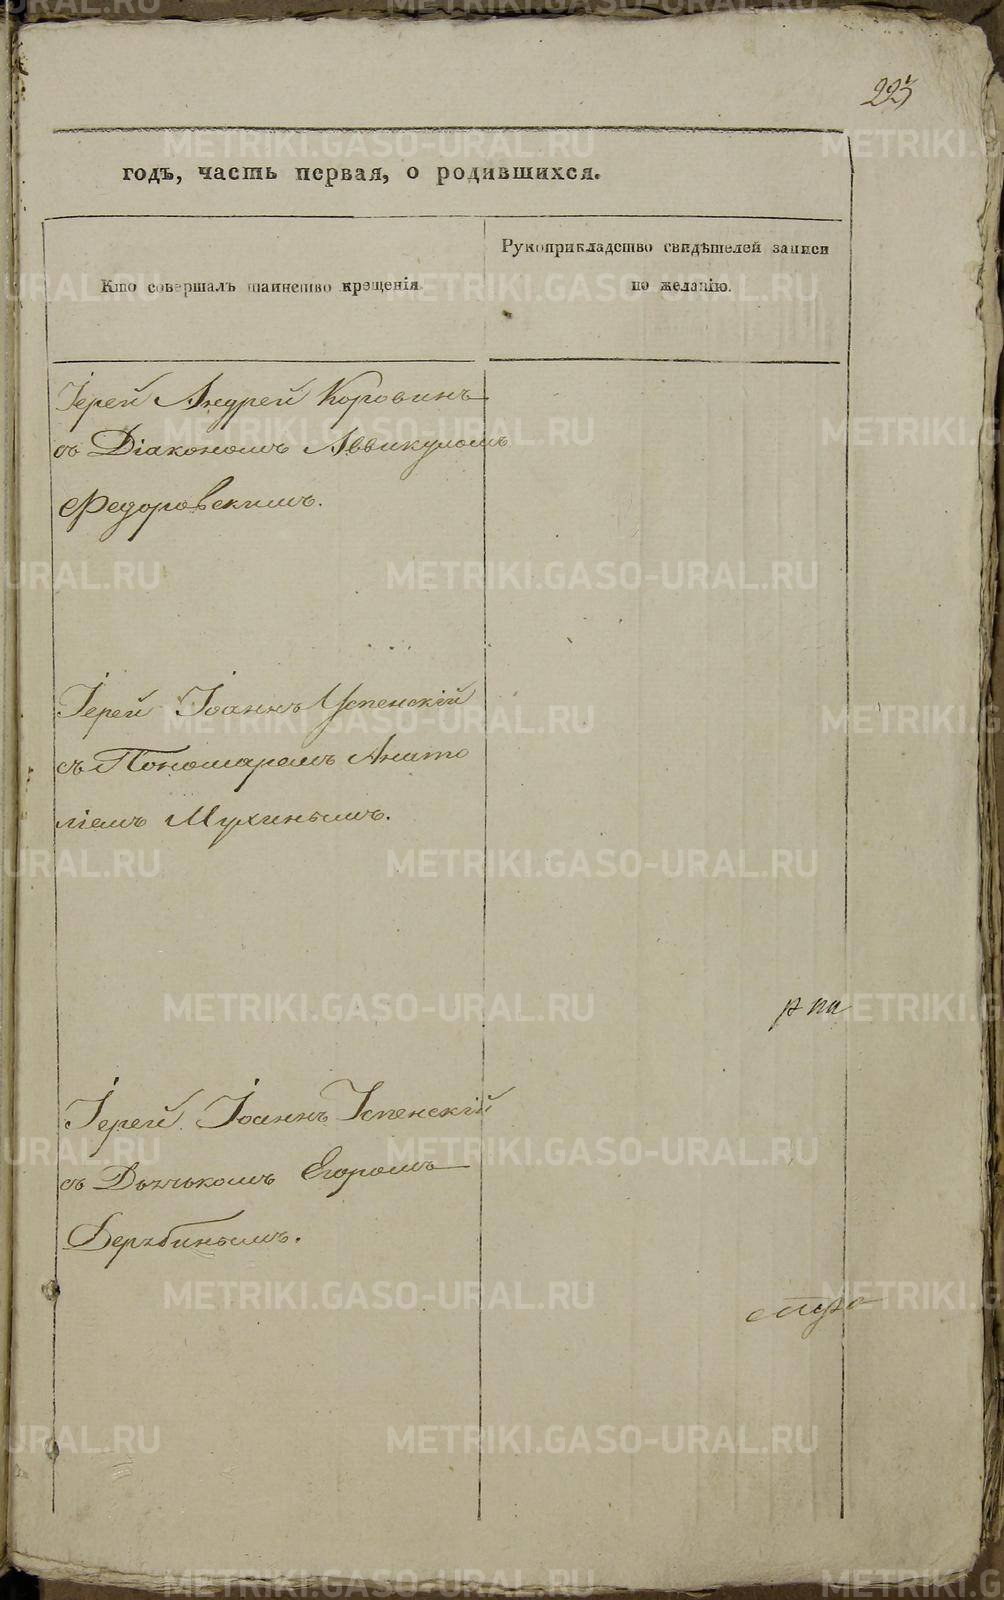 223
годъ, часть первая, о родившихся.
Кто совершалъ таинство крещенія.
Рукоприкладство свидѣтелей записи
по желанію.
Іерей Андрей Коровинъ
съ Діакономъ Аввикумомъ
Федоровскимъ.
Іерей Іоаннъ Успенскій
съ Пономаремъ Анато
ліемъ Мухинымъ.
Іерей Іоаннъ Успенскій
съ Дьячькомъ Егоромъ
Дерябинымъ.
METRIKI.GASO-URAL.RU